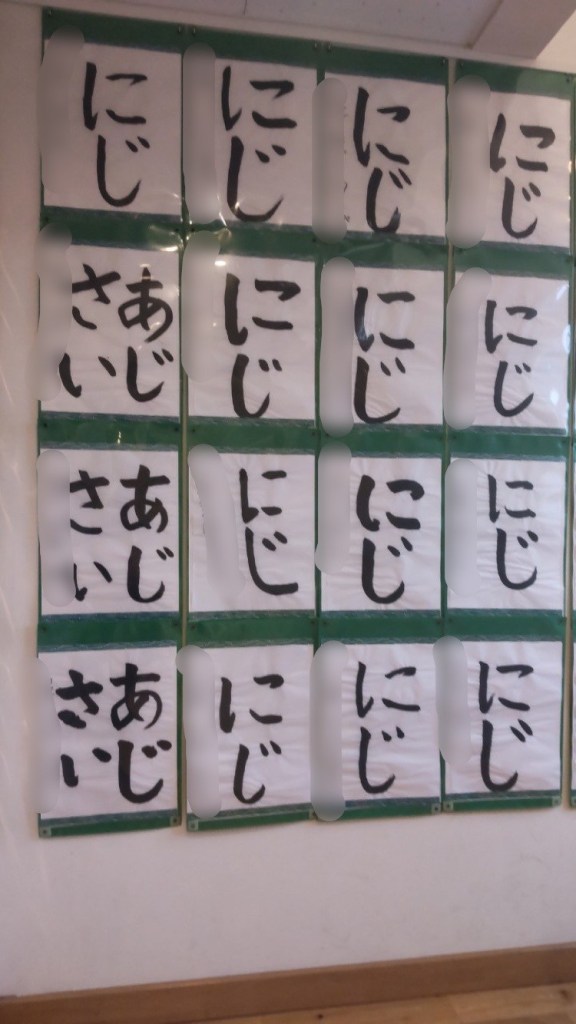 にじ
にじ
にじ
にじ
あじ
さい
にじ
にじ
にじ
あじ
さい
にじ
にじ
にじ
あじ
さい
にじ
にじ
にじ